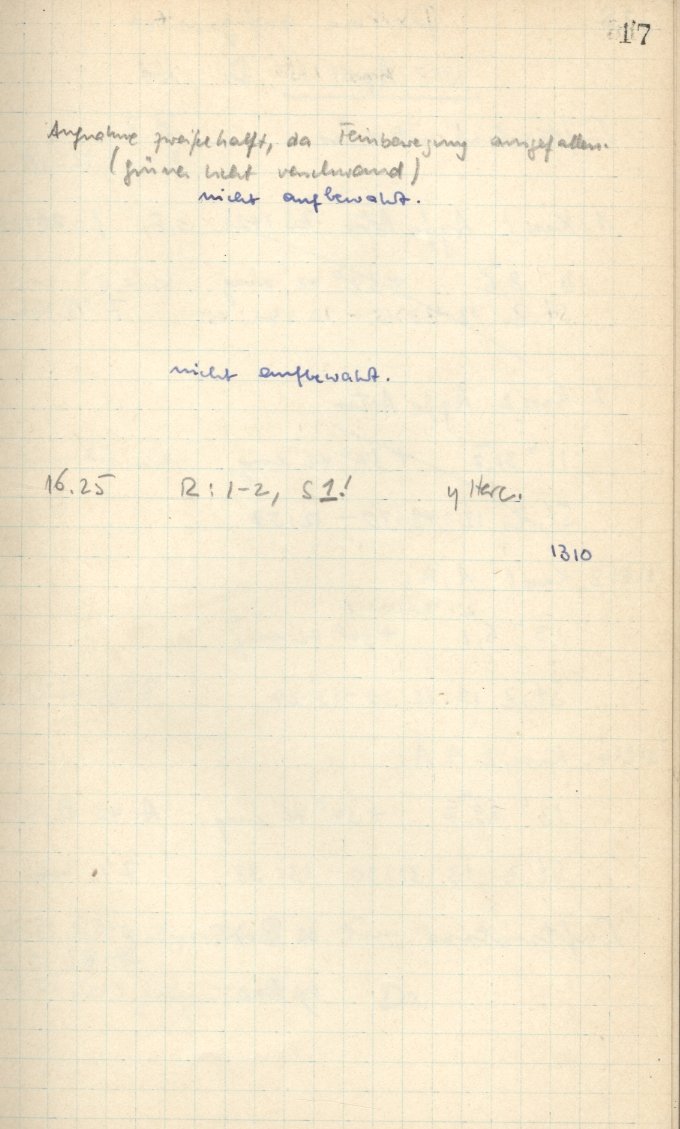 17
Aufnahme zweifelhaft, da Feinbewegung ausgefallen.
(grünes Licht verschwand)
nicht aufbewahrt.
nicht aufbewahrt.
16.25 R: 1-2, S 1! η Herc.
1310